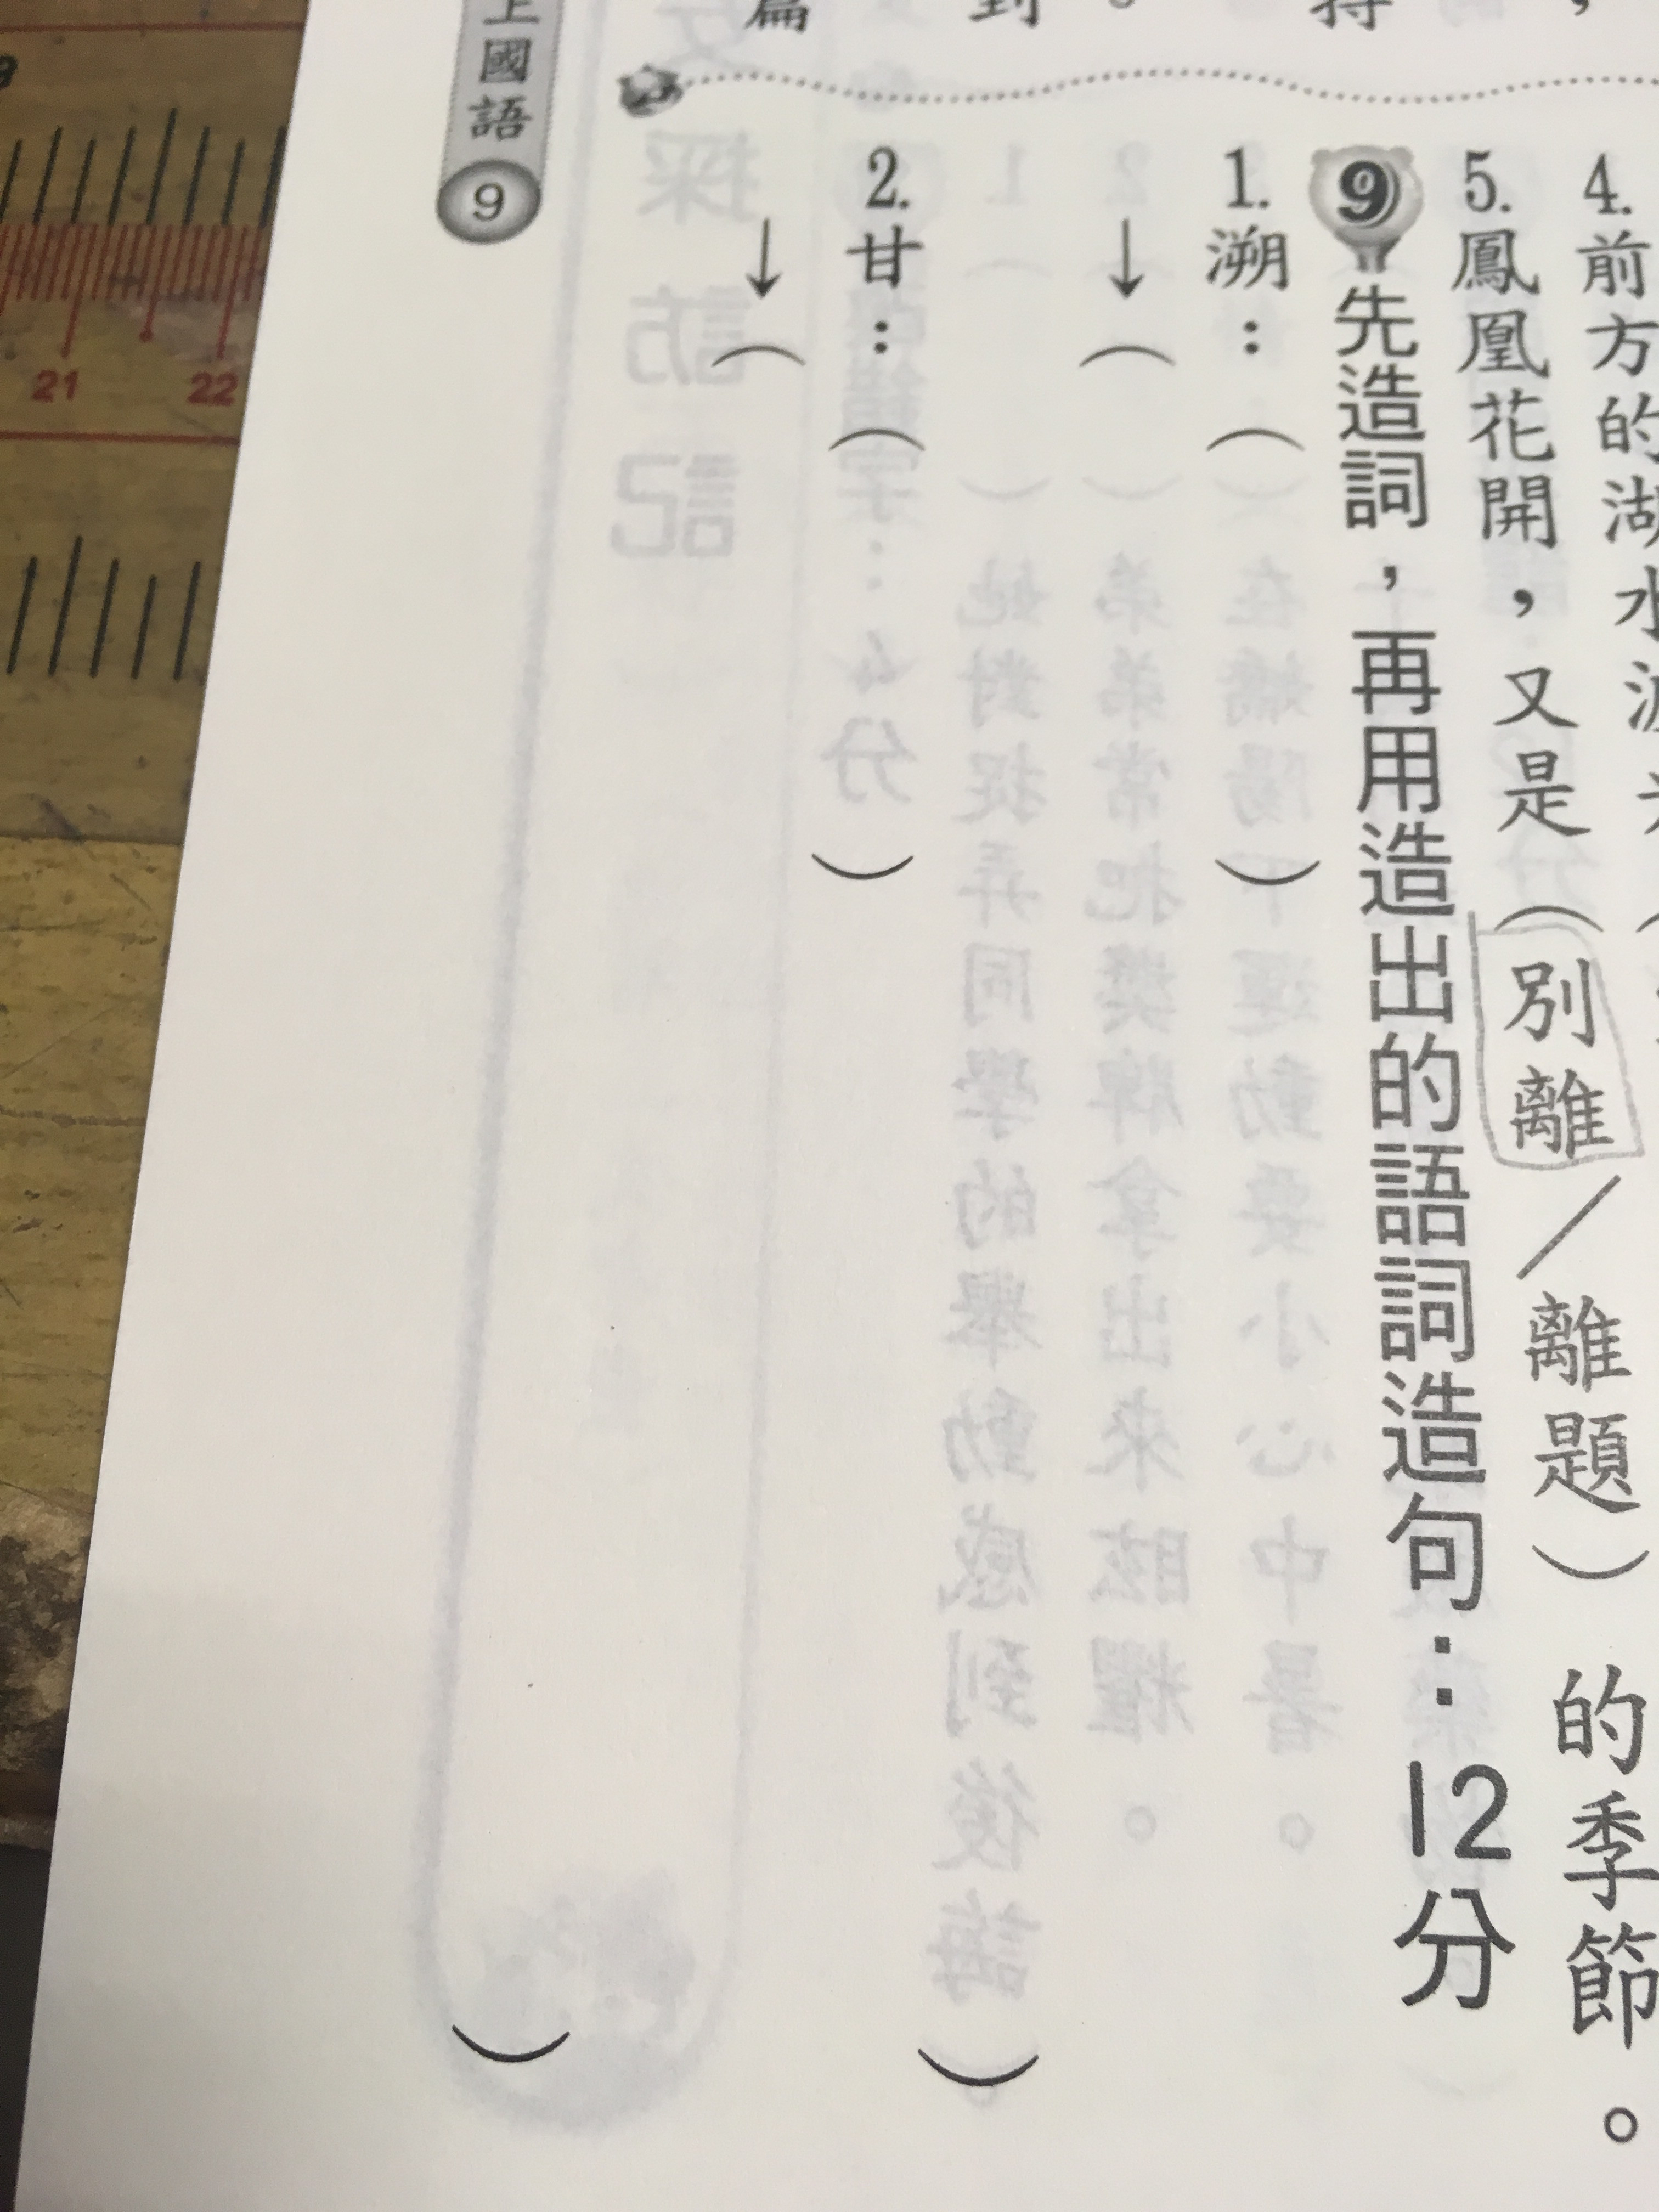 4.前方的湖水
5.鳳凰花開，又是（別離／離題）的季節。
9 先造詞，再用造出的語詞造句：12分
1.溯：（　）
↓（　）
2.甘：（　）
↓（　）
上國語 9
21 22